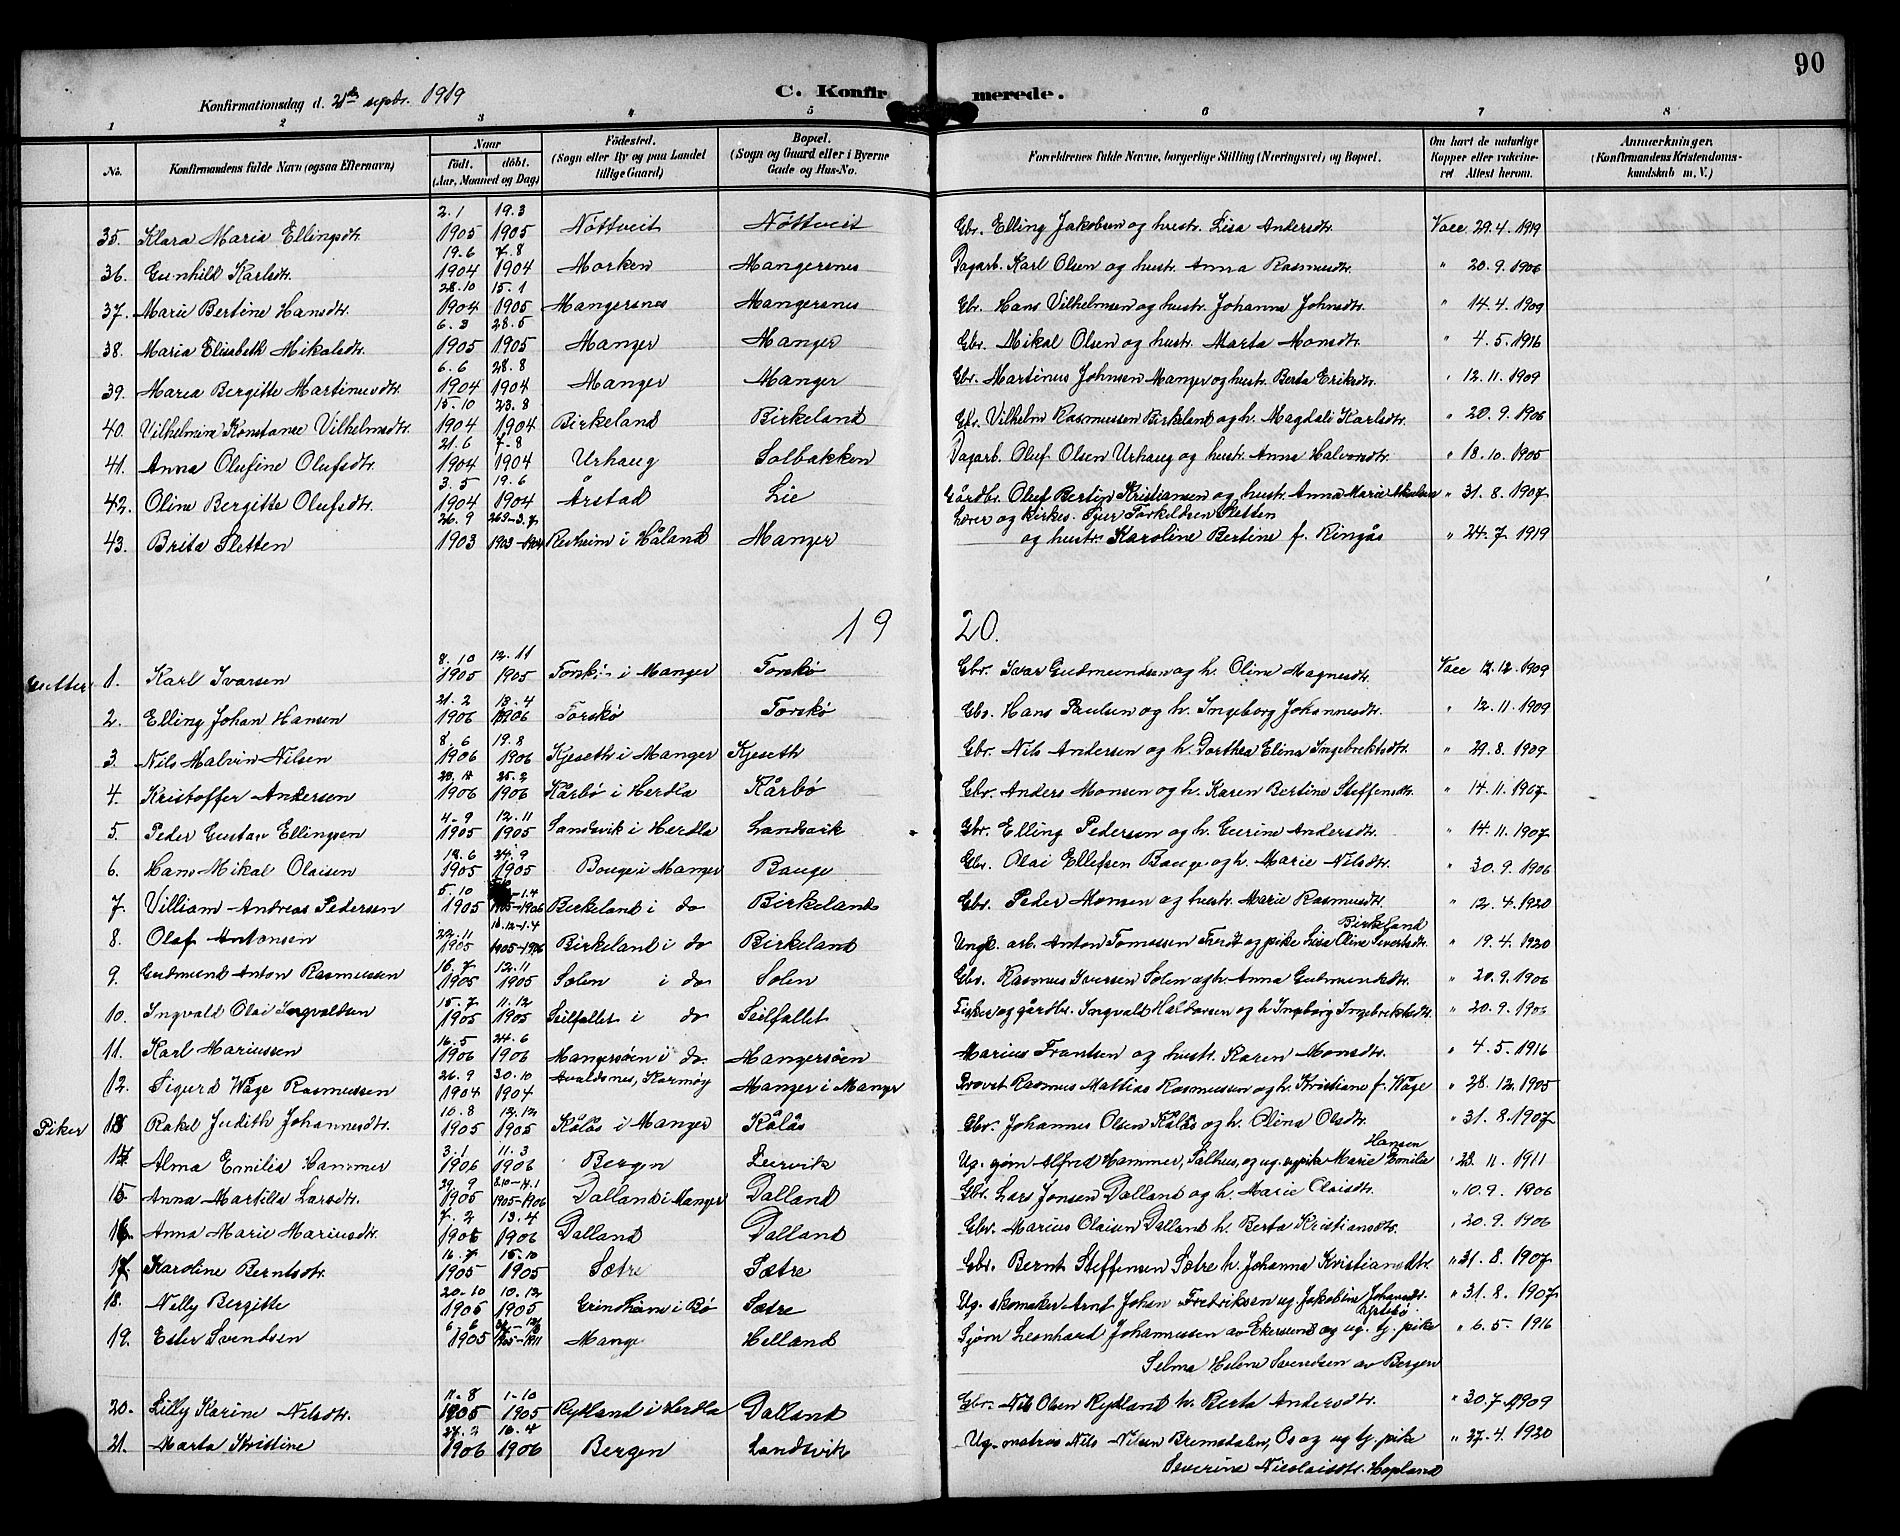 90
Konfirmationsdag d. 21de septbr. 1919 C. Konfirmerede.
1 2 3 4 5 6 7 8
No. Konfirmandens fulde Navn (ogsaa Efternavn) Naar födt. döbt. (Aar, Maaned og Dag) Födested. (Sogn eller By og paa Landet tillige Gaard) Bopæl. (Sogn og Gaard eller i Byerne Gade og Hus-No. Forældrenes fulde Navne, borgerlige Stilling (Næringsvei) og Bopæl. Om havt de naturlige Kopper eller vaccineret Attest herom. Anmærkninger. (Konfirmandens Kristendomskundskab m. V.)
35. Klara Maria Ellingsdtr. 2.1 1905 19.3 1905 Nöttveit Nöttveit Gbr. Elling Jakobsen og hustr. Lisa Andersdtr. Vacc 29.4.1919
36. Gunhild Karlsdtr. 19.6 1904 7.8 1904 Morken Mangersnes Dagarb. Karl Olsen og hustr. Anna Rasmusdtr. " 20.9.1906
37. Marie Bertine Hansdtr. 28.10 1904 15.1 1905 Mangersnes Mangersnes Gbr. Hans Vilhelmsen og hustr. Johanna Johnsdtr. " 14.4.1909
38. Maria Elisabeth Mikalsdtr. 6.3 1905 28.5 1905 Manger Manger Gbr. Mikal Olsen og hustr. Marta Monsdtr. " 4.5.1916
39. Maria Bergitte Martinusdtr. 6.6 1904 28.8 1904 Manger Manger Gbr. Martinus Johnsen Manger og hustr. Berta Eriksdtr. " 12.11.1909
40. Vilhelmine Konstanse Vilhelmsdtr. 15.10 1904 23.8 1904 Birkeland Birkeland Gbr. Vilhelm Rasmussen Birkeland og h. Magdali Karlsdtr. " 20.9.1906
41. Anna Olufine Olufsdtr. 21.6 1904 7.8 1904 Urhaug Solbakken Dagarb. Oluf Olsen Urhaug og hustr. Anna Halvorsdtr. " 18.10.1905
42. Oline Bergitte Olufsdtr. 3.5 1904 19.6 1904 Årstad Lie Gårdbr. Oluf Bertin Kristiansen og hustr. Anna Marie " 31.8.1907
43. Brita Sletten 26.9 1903 1903-1904 i Håland Manger Lærer og kirkes. Sjur Torkildsen Sletten
og hustr. Karoline Bertine f. Ringås " 24.7.1919
1920.
Gutter 1. Karl Ivarsen 8.10 1905 12.11 1905 i Manger Torskø Gbr. Ivar Gudmundsen og h. Oline Magnusdtr. Vacc 12.12.1909
2. Elling Johan Hansen 21.2 1906 13.4 1906 Torskø Torskø Gbr. Hans Paulsen og h. Ingeborg Johannesdtr. " 12.11.1909
3. Nils Malvin Nilsen 8.6 1906 19.8 1906 Kjeseth i Manger Kjeseth Gbr. Nils Andersen og h. Dorthea Elina Ingebrektsdtr. " 29.8.1909
4. Kristoffer Andersen 1906 25.2 1906 Kårbø i Herdla Kårbø Gbr. Anders Monsen og h. Karen Bertine Steffensdtr. " 14.11.1907
5. Peder Gustav Ellingsen 4-9 1905 12.11 1905 Landsvik i Herdla Landsvik Gbr. Elling Pedersen og h. Gurine Andersdtr. " 14.11.1907
6. Hans Mikal Olaisen 18.6 1905 24.9 1905 Bauge i Manger Bauge Gbr. Olai Ellefsen Bauge og h. Marie Nilsdtr. " 30.9.1906
7. Villiam Andreas Pedersen 5.10 1905 -1.4 1905-1906 Birkeland i do Birkeland Gbr. Peder Monsen og hustr. Marie Rasmusdtr. " 12.4.1920
8. Olaf Antonsen 22.11 1905 10.12-1.4 1905-1906 Birkeland i do Birkeland Ungk. arb. Anton Tomassen og pike Lisa Oline Sivertsdtr. Birkeland " 19.4.1920
9. Gudmund Anton Rasmussen 16.7 1905 12.11 1905 Solen i do Solen Gbr. Rasmus Iversen Solen og h. Anna Gudmundsdtr. " 20.9.1906
10. Ingvald Olai Ingvaldsen 15.7 1905 11.12 1905 Seilfallet i do Seilfallet Fisker og gårdbr. Ingvald Haldorsen og h Ingeborg Ingebrektsdtr. " 20.9.1906
11. Karl Mariussen 16.5 1906 24.6 1906 Mangersøen i do. Mangersøen Marius Frantsen og hustr. Karen Monsdtr. " 4.5.1916
12. Sigurd Wåge Rasmussen 26.9 1904 30.10 1904 Avaldsnes, Karmøy Manger i Manger Provst Rasmus Mattias Rasmussen og h. Kristiane f. Wåge " 28.12.1905
Piker 13 Rakel Judith Johannesdtr. 10.8 1905 12.12 1905 Kålås i Manger Kålås Gbr. Johannes Olsen Kålås og h. Olina Olsdtr. " 31.8.1907
14. Alma Emilie Hammer 3.1 1906 11.3 1906 Bergen Leirvik Ug. sjøm Alfred Hammer, Salhus, og ug. pike Marie Emilie Hansen " 23.11.1911
15 Anna Martilla Larsdtr. 29.9 1905 1905-1906 Dalland i Manger Dalland Gbr. Lars Jonsen Dalland og h. Marie Olaisdtr. " 10.9.1906
16 Anna Marie Mariusdtr. 7.2 1906 13.4 1906 Dalland Dalland Gbr. Marius Olaisen Dalland h. Berta Kristiansdtr. " 20.9.1906
17 Karoline Berntsdtr. 16.7 1905 15.10 1905 Sætre Sætre Gbr. Bernt Steffensen Sætre h. Johanna Kristiansdtr. " 31.8.1907
18. Nelly Bergitte 20.10 1905 10.12 1905 Grindheim i Bö Sætre Ug. skomaker Arnt Johan Fredriksen ug. Jakobine Johansdtr. " 31.8.1907
19. Ester Svendsen 6.6 1905 1905-1911 Mange Helland Sjøm Leonhard Johannessen av Ekersund og ug. tj. pike " 6.5.1916
Selma Helene Svendsen av Bergen
20. Lilly Karine Nilsdtr. 11-8 1905 1-10 1905 Rykland i Herdla Dalland Gbr. Nils Olsen Rykland h. Berta Andersdtr. " 30.7.1909
21. Marta Kristine 24.2 1906 16.4 1906 Bergen Landsvik Ug. matros Nils Nilsen Bremsdalen, Os og ug tj. pike " 27.4.1920
Severine Nicolaisdtr. Hopland